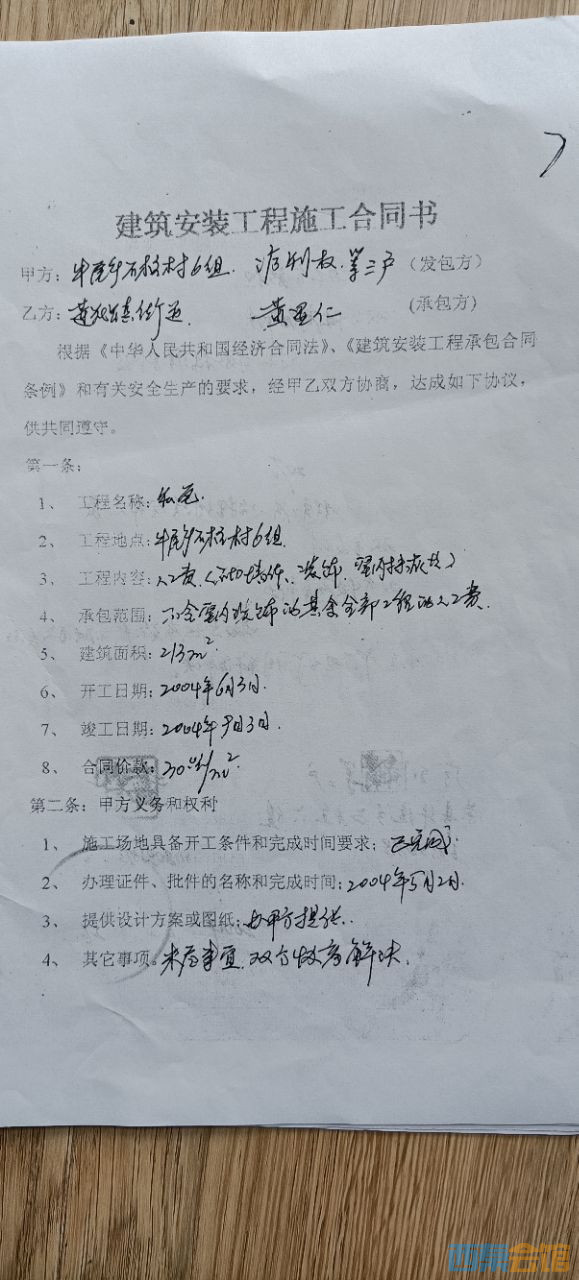 建筑安装工程施工合同书
甲方：牛尾乡石柱村6组. 第三户（发包方）
乙方：街道 黄星仁 (承包方)
根据《中华人民共和国经济合同法》、《建筑安装工程承包合同
条例》和有关安全生产的要求，经甲乙双方协商，达成如下协议，
供共同遵守。
第一条：
1、 工程名称：私宅.
2、 工程地点：牛尾乡石柱村6组.
3、 工程内容：人工费
4、 承包范围：不含室内装饰的其余全部工程的人工费.
5、 建筑面积：213m²
6、 开工日期：2004年6月3日.
7、 竣工日期：2004年9月3日.
8、 合同价款：/m².
第二条：甲方义务和权利
1、 施工场地具备开工条件和完成时间要求；已完成
2、 办理证件、批件的名称和完成时间：2004年5月2日.
3、 提供设计方案或图纸：由甲方提供.
4、 其它事项。未尽事宜.双方协商解决.
西泵会馆